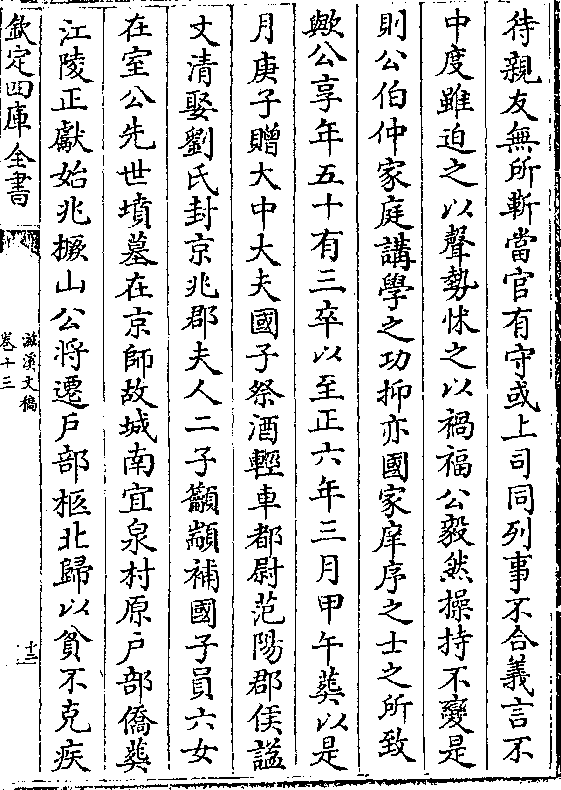 待親友無所靳當官有守或上司同列事不合義言不
中度雖迫之以聲勢怵之以禍福公毅然操持不變是
則公伯仲家庭講學之功抑亦國家庠序之士之所致
歟公享年五十有三卒以至正六年三月甲午葬以是
月庚子贈大中大夫國子祭酒輕車都尉范陽郡侯諡
文清娶劉氏封京兆郡夫人二子籲顓補國子員六女
在室公先世墳墓在京師故城南宜泉村原戶部僑葬
江陵正獻始兆撅山公將遷戶部柩北歸以貧不克疾
欽定四庫全書
滋溪文稿
卷十三
十二